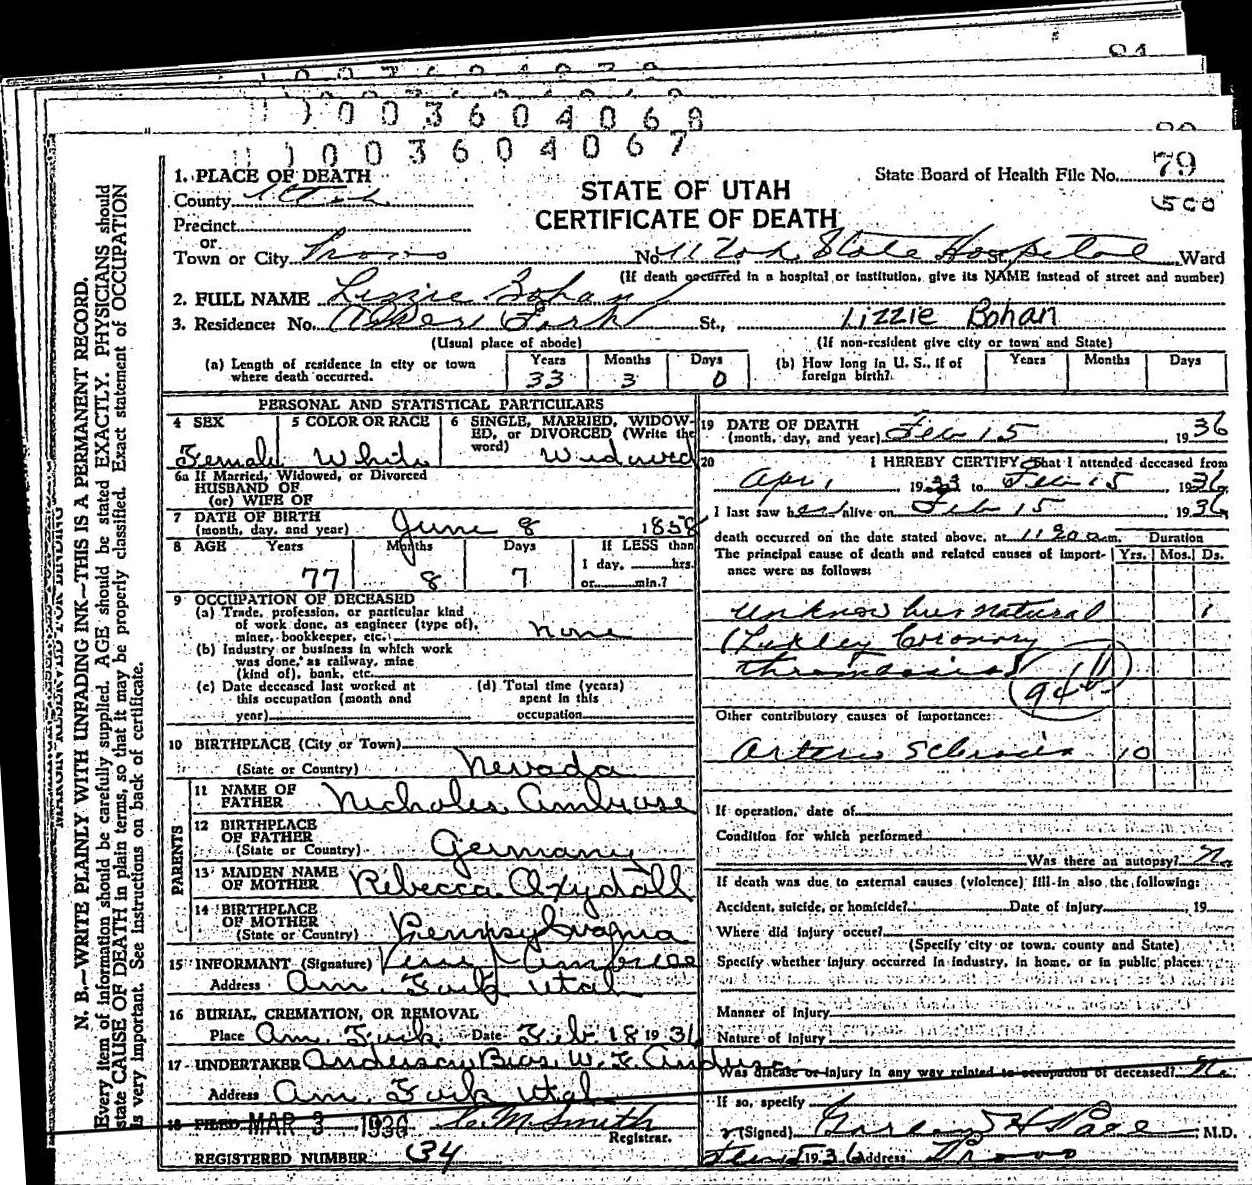 1003604068
1003604067
N. B.—WRITE PLAINLY WITH UNFADING INK—THIS IS A PERMANENT RECORD.
Every item of information should be carefully supplied. AGE should be stated EXACTLY. PHYSICIANS should
state CAUSE OF DEATH in plain terms, so that it may be properly classified. Exact statement of OCCUPATION
is very important. See instructions on back of certificate.
1. PLACE OF DEATH
County Utah
Precinct
or
Town or City Provo
STATE OF UTAH
CERTIFICATE OF DEATH
State Board of Health File No. 79
500
No. Utah State Hospital Ward
(If death occurred in a hospital or institution, give its NAME instead of street and number)
2. FULL NAME Lizzie Bohan
3. Residence: No. Amer Fork St., Lizzie Bohan
(Usual place of abode) (If non-resident give city or town and State)
(a) Length of residence in city or town where death occurred. Years 33 Months 3 Days 0
(b) How long in U. S., if of foreign birth? Years Months Days
PERSONAL AND STATISTICAL PARTICULARS
4 SEX Female
5 COLOR OR RACE White
6 SINGLE, MARRIED, WIDOWED, or DIVORCED (Write the word) Widowed
6a If Married, Widowed, or Divorced
HUSBAND OF
(or) WIFE OF
7 DATE OF BIRTH
(month, day, and year) June 8 1858
8 AGE Years 77 Months 8 Days 7 If LESS than
1 day, hrs.
or min.?
9 OCCUPATION OF DECEASED
(a) Trade, profession, or particular kind
of work done, as engineer (type of),
miner, bookkeeper, etc. none
(b) Industry or business in which work
was done, as railway, mine
(kind of), bank, etc.
(c) Date deceased last worked at
this occupation (month and
year)
(d) Total time (years)
spent in this
occupation
10 BIRTHPLACE (City or Town)
(State or Country) Nevada
PARENTS
11 NAME OF FATHER Nicholas Ambrose
12 BIRTHPLACE OF FATHER
(State or Country) Germany
13 MAIDEN NAME OF MOTHER Rebecca
14 BIRTHPLACE OF MOTHER
(State or Country) Pennsylvania
15 INFORMANT (Signature)
Address Am. Fork Utah
16 BURIAL, CREMATION, OR REMOVAL
Place Am. Fork Date Feb 18 1936
17 UNDERTAKER Anderson Bros. W. F.
Address Am. Fork Utah
18 FILED MAR 3 1936 C. M. Smith
Registrar.
REGISTERED NUMBER 34
19 DATE OF DEATH
(month, day, and year) Feb 15, 1936
20 I HEREBY CERTIFY, That I attended deceased from
Apr, 1933 to Feb 15, 1936
I last saw her alive on Feb 15, 1936
death occurred on the date stated above, at m. Duration
The principal cause of death and related causes of importance were as follows: Yrs. Mos. Ds.
Unknow but natural 1
(Likley Coronory
thrombosis)
94b
Other contributory causes of importance:
Arterio Sclerosis 10
If operation, date of
Condition for which performed
Was there an autopsy? No
If death was due to external causes (violence) fill-in also the following:
Accident, suicide, or homicide? Date of injury, 19
Where did injury occur?
(Specify city or town, county and State)
Specify whether injury occurred in industry, in home, or in public place:
Manner of Injury
Nature of Injury
Was disease or injury in any way related to occupation of deceased? No
If so, specify
(Signed), M.D.
1936 Address Provo